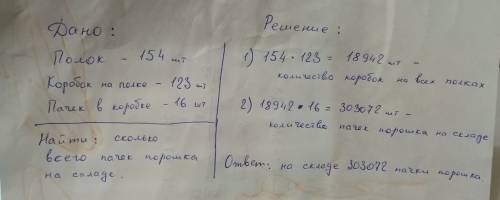 Дано:
Полок - 154 шт
Коробок на полке - 123 шт
Пачек в коробке - 16 шт
Найти: сколько
всего пачек порошка
на складе.
Решение:
1) 154 · 123 = 18942 шт -
количество коробок на всех полках
2) 18942 · 16 = 303072 шт -
количество пачек порошка на складе
Ответ: на складе 303072 пачки порошка